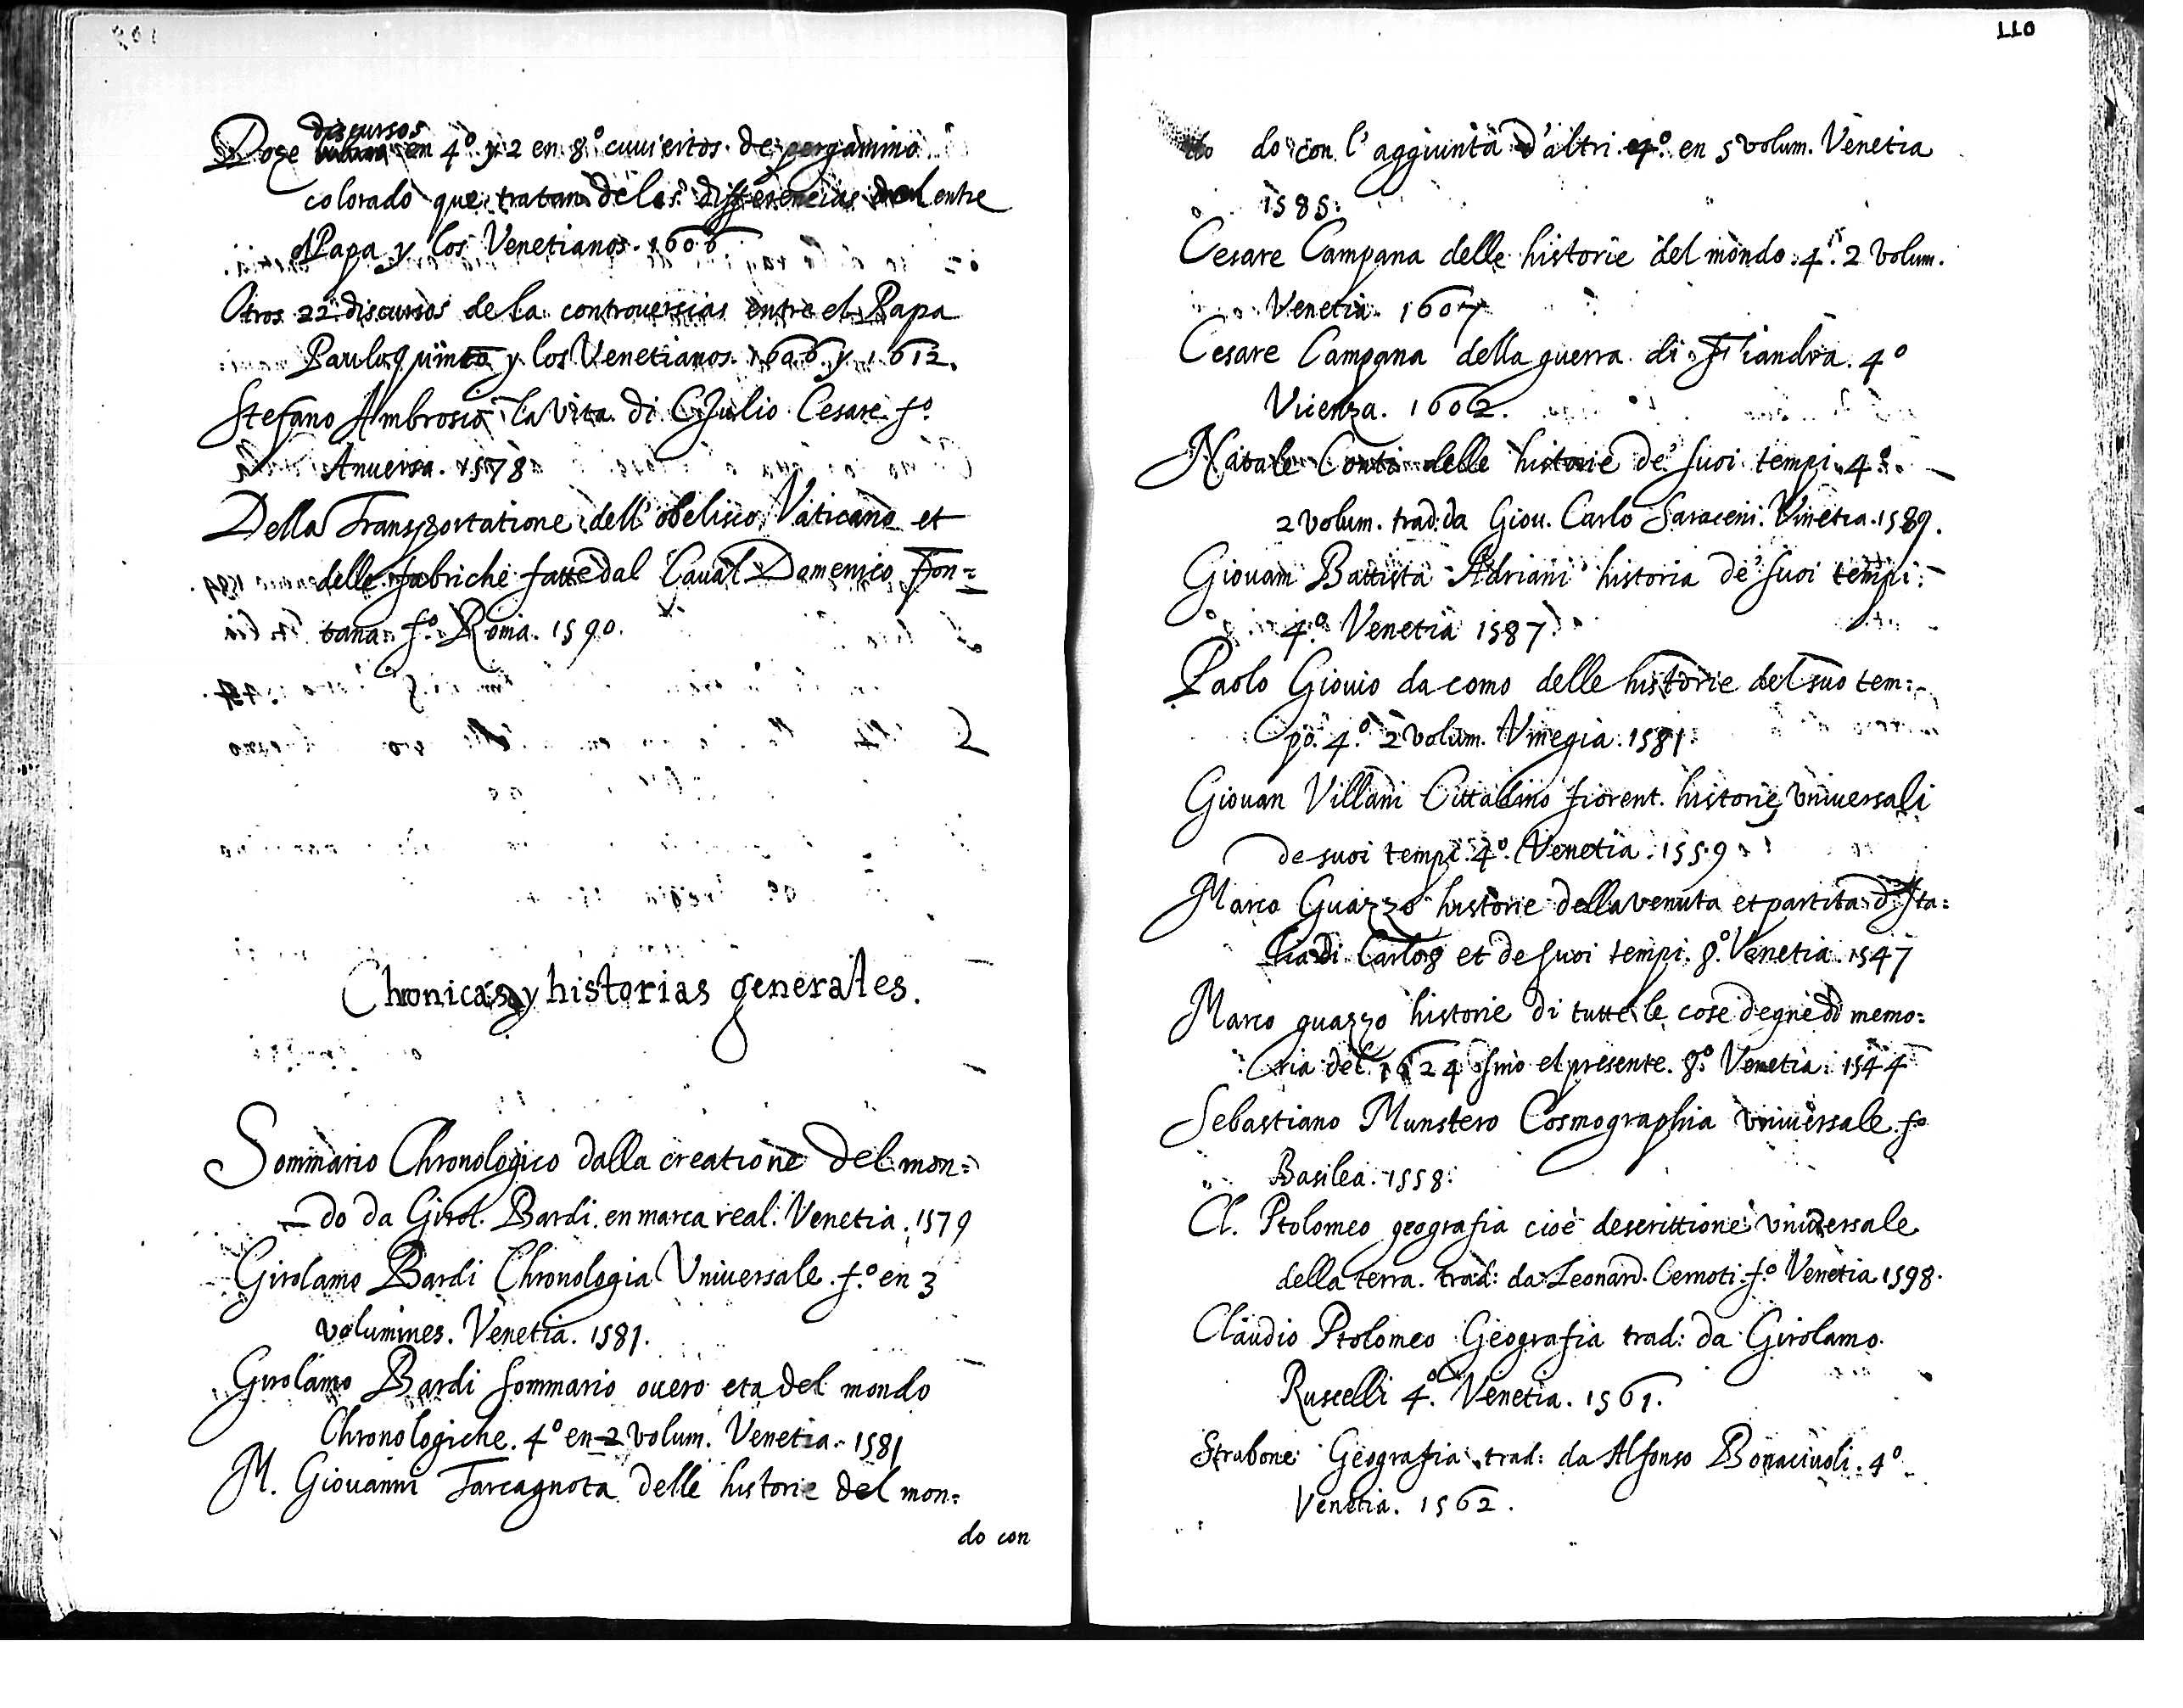 discursos
Doze en 4º. y 2 en 8º cuuiertos de pergamino
colorado que tratan de las differencias entre
el Papa y los Venetianos. 1606
Otros 22 discursos de la controuersias entre el Papa
Paulo quinto y los Venetianos. 1606. y 1612.
Stefano Ambrosio la vita di C. Julio Cesare. fº.
Anuersa. 1578
Della Transportatione dell' obelisco Vaticano et
delle fabriche fatte dal Caual Domenico Fon=
tana. fº. Roma. 1590.
Chronicas y historias generales.
Sommario Chronologico dalla creatione del mon=
do da Girol. Bardi. en marca real. Venetia. 1579
Girolamo Bardi Chronologia Vniuersale. fº. en 3
volumines. Venetia. 1581.
Girolamo Bardi sommario ouero eta del mondo
Chronologiche. 4º en 2 volum. Venetia. 1581
M. Giouanni Tarcagnota delle historie del mon=
do con
110
do con l' aggiunta d'altri. 4º. en 5 volum. Venetia
1585.
Cesare Campana delle historie del mondo. 4º. 2 volum.
Venetia. 1607
Cesare Campana della guerra di Fiandra. 4º
Vicenza. 1602.
Natale Conti delle historie de' suoi tempi. 4º.
2 volum. trad. da Giou. Carlo Saraceni. Vinetia. 1589.
Giouam Battista Adriani historia de' suoi tempi.
4º. Venetia 1587.
Paolo Giouio da como delle historie del suo tem=
po. 4º. 2 volum. Vinegia. 1581.
Giouan Villani Cittadino fiorent. historie vniuersali
de suoi tempi. 4º. Venetia. 1559
Marco Guazzo historie della venuta et partita d'Ita=
lia di Carlo 8 et de suoi tempi. 8º. Venetia. 1547
Marco guazzo historie di tutte le cose degne di memo=
ria del 1524 sino el presente. 8º. Venetia. 1544
Sebastiano Munstero Cosmographia vniuersale. fº
Basilea. 1558.
Cl. Ptolomeo geografia cioè descrittione vniuersale
della terra. trad: da Leonard. Cernoti. fº. Venetia 1598.
Claudio Ptolomeo Geografia trad: da Girolamo
Ruscelli 4º. Venetia. 1561.
Strabone Geografia trad: da Alfonso Bonaciuoli. 4º
Venetia. 1562.